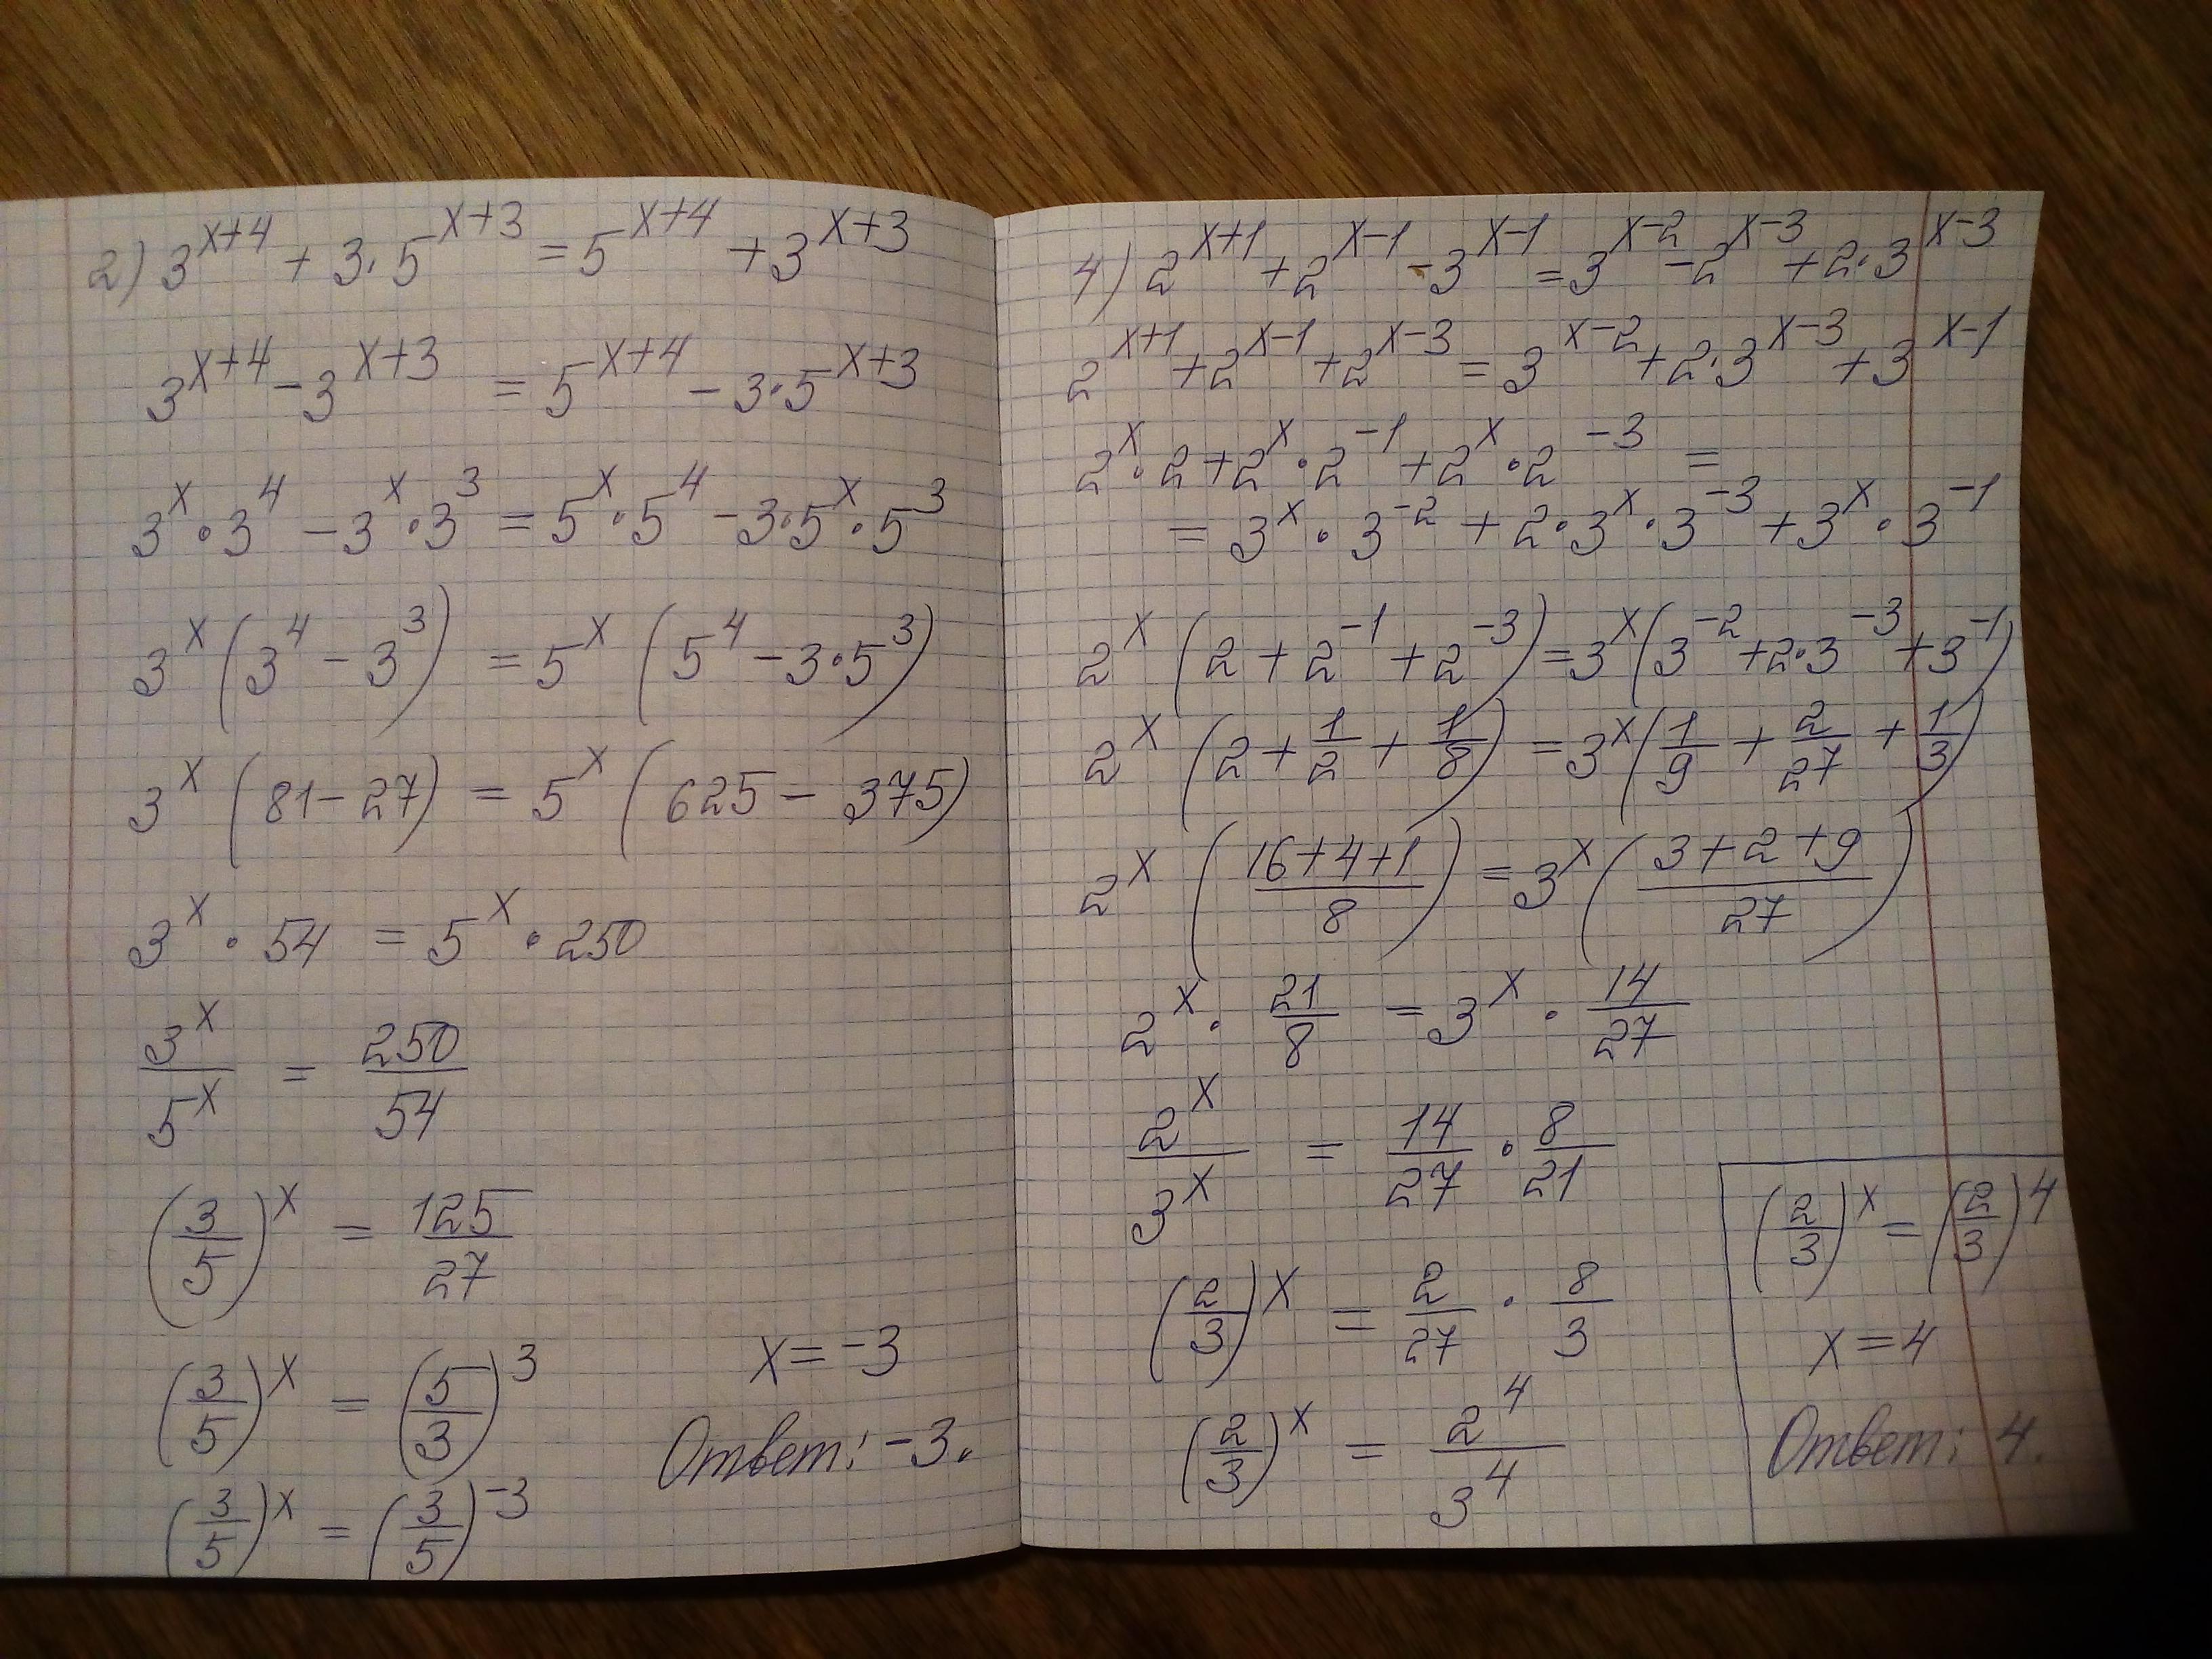 2) 3^{x+4} + 3·5^{x+3} = 5^{x+4} + 3^{x+3}
3^{x+4} - 3^{x+3} = 5^{x+4} - 3·5^{x+3}
3^x · 3^4 - 3^x · 3^3 = 5^x · 5^4 - 3·5^x · 5^3
3^x (3^4 - 3^3) = 5^x (5^4 - 3·5^3)
3^x (81 - 27) = 5^x (625 - 375)
3^x · 54 = 5^x · 250
3^x / 5^x = 250 / 54
(3/5)^x = 125/27
(3/5)^x = (5/3)^3
(3/5)^x = (3/5)^{-3}
x = -3
Ответ: -3.
4) 2^{x+1} + 2^{x-1} - 3^{x-1} = 3^{x-2} - 2^{x-3} + 2·3^{x-3}
2^{x+1} + 2^{x-1} + 2^{x-3} = 3^{x-2} + 2·3^{x-3} + 3^{x-1}
2^x · 2 + 2^x · 2^{-1} + 2^x · 2^{-3} =
= 3^x · 3^{-2} + 2·3^x · 3^{-3} + 3^x · 3^{-1}
2^x (2 + 2^{-1} + 2^{-3}) = 3^x (3^{-2} + 2·3^{-3} + 3^{-1})
2^x (2 + 1/2 + 1/8) = 3^x (1/9 + 2/27 + 1/3)
2^x ((16+4+1)/8) = 3^x ((3+2+9)/27)
2^x · 21/8 = 3^x · 14/27
2^x / 3^x = 14/27 · 8/21
(2/3)^x = 2/27 · 8/3
(2/3)^x = 2^4 / 3^4
(2/3)^x = (2/3)^4
x = 4
Ответ: 4.